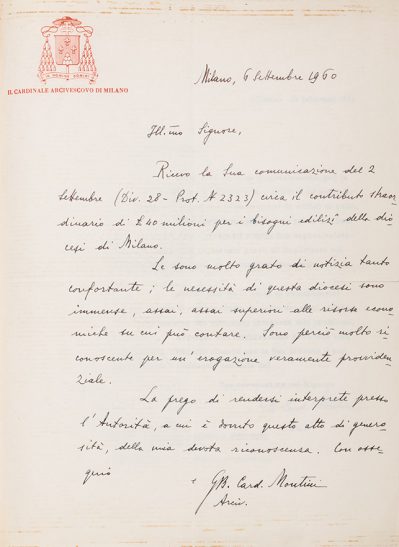 IN NOMINE DOMINI
IL CARDINALE ARCIVESCOVO DI MILANO
Milano, 6 Settembre 1960
Ill.mo Signore,
Ricevo la Sua comunicazione del 2
Settembre (Div. 28 - Prot. N 2323) circa il contributo straor-
dinario di £ 40 milioni per i bisogni edilizi della dio-
cesi di Milano.
Le sono molto grato di notizia tanto
confortante; le necessità di questa diocesi sono
immense, assai, assai superiori alle risorse econo-
miche su cui può contare. Sono perciò molto ri-
conoscente per un'erogazione veramente provviden-
ziale.
La prego di rendersi interprete presso
l'Autorità, a cui è dovuto questo atto di genero-
sità, della mia devota riconoscenza. Con osse-
quio
+ GB. Card. Montini
Arciv.